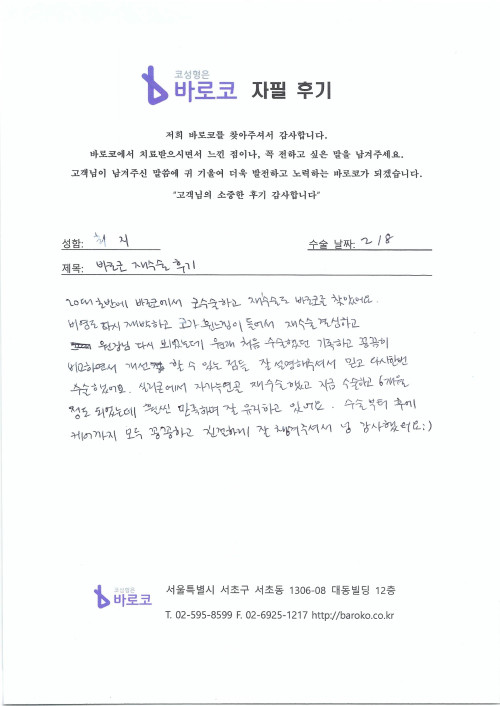 코성형은
바로코 자필 후기
저희 바로코를 찾아주셔서 감사합니다.
바로코에서 치료받으시면서 느낀 점이나, 꼭 전하고 싶은 말을 남겨주세요.
고객님이 남겨주신 말씀에 귀 기울여 더욱 발전하고 노력하는 바로코가 되겠습니다.
"고객님의 소중한 후기 감사합니다"
성함: 최 지 수술 날짜: 2/8
제목: 바로코 재수술 후기
20대 초반에 바로코에서 코수술하고 재수술로 바로코를 찾았어요.
비염도 다시 재발하고 코가 휜느낌이 들어서 재수술 결심하고
원장님 다시 뵈었는데 원래 처음 수술했던 기록하고 꼼꼼히
비교하면서 개선 할 수 있는 점들 잘 설명해주셔서 믿고 다시한번
수술했어요. 실리콘에서 자가늑연골 재수술했고 지금 수술하고 6개월
정도 되었는데 훨씬 만족하며 잘 유지하고 있어요. 수술부터 후에
케어까지 모두 꼼꼼하고 친절하게 잘 챙겨주셔서 넘 감사했어요:)
코성형은
바로코
서울특별시 서초구 서초동 1306-08 대동빌딩 12층
T. 02-595-8599 F. 02-6925-1217 http://baroko.co.kr